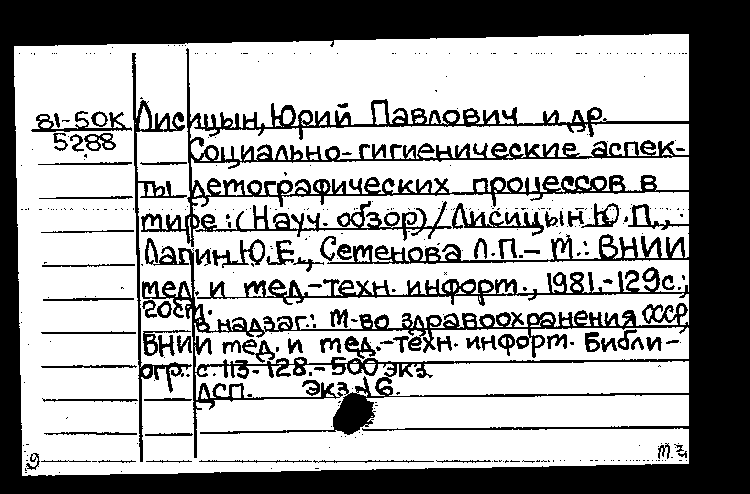 81-50К
5288
Лисицын, Юрий Павлович и др.
Социально-гигиенические аспек-
ты демографических процессов в
мире: (Науч. обзор)/Лисицын Ю.П.,
Лапин Ю.Е., Семенова Л.П.- М.: ВНИИ
мед. и мед.-техн. информ., 1981.-129с.;
20см.
В надзаг.: М-во здравоохранения СССР,
ВНИИ мед. и мед.-техн. информ. Библи-
огр.: с. 113-128.- 500 экз.
ДСП. Экз. 16.
9
м.з.